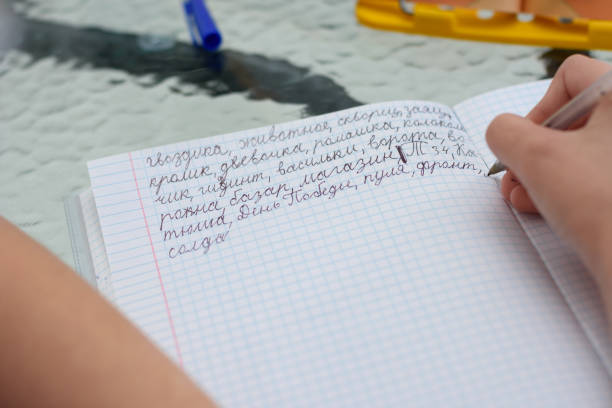 гвоздика, животное, скворец, заяц,
кролик, двевочка, ромашка, колоколь
чик, гиацинт, васильки, ворота, во
рона, базар, магазин, Т 34, Ка
тюша, День Победы, пуля, фронт,
солда